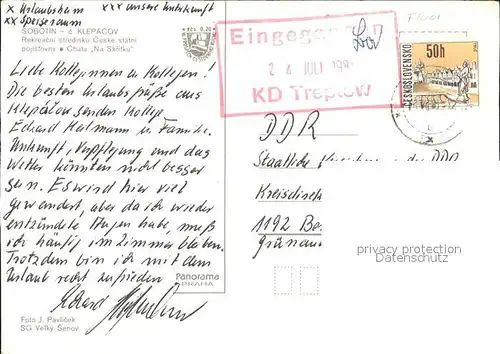 x Urlaubsheim xxx unsere Unterkunft
xx Speiseraum
SOBOTÍN - č. KLEPÁČOV
Rekreační středisko České státní
pojišťovny • Chata „Na Skřítku"
Kčs 0,20
Liebe Kolleginnen u. Kollegen!
Die besten Urlaubsgrüße aus
Klepáčov senden Kolleg
Eckard Halmann u. Familie.
Unterkunft, Verpflegung und das
Wetter könnten nicht besser
sein. Es wird hier viel
gewandert, aber da ich wieder
entzündete Augen habe, muß
ich häufig im Zimmer bleiben.
Trotzdem bin ich mit dem
Urlaub recht zufrieden
Eckard
Foto J. Pavlíček
SG Velký Šenov
Panorama
PRAHA
Eingegangen
2 4. JULI 198
KD Treptow
ČESKOSLOVENSKO
50h
DDR
Staatliche Versicherung der DDR
Kreisdirek
1192 Be
Grünau
privacy protection
akpool.com